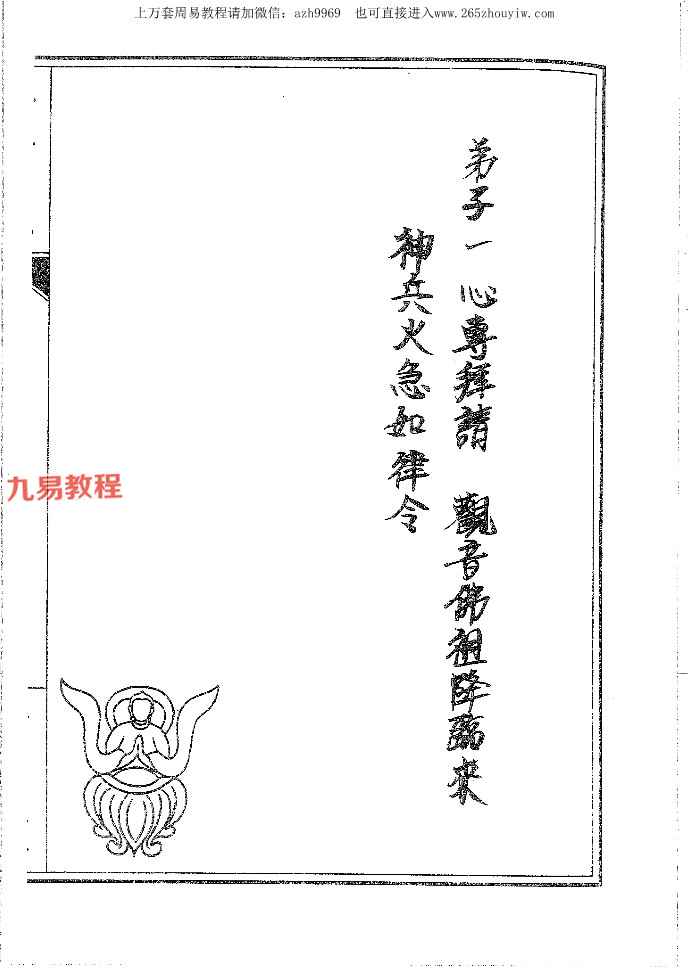 上万套周易教程请加微信：azh9969　也可直接进入www.265zhouyiw.com
弟子一心專拜請　觀音佛祖降臨來
神兵火急如律令
九易教程